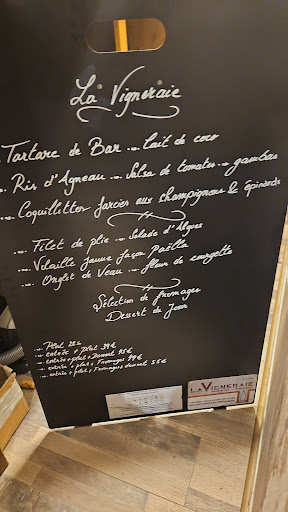 La Vigneraie
Tartare de Bar ... Lait de coco
... Ris d'Agneau ... Salsa de tomates ... gambas
... Coquillettes farcies aux champignons & épinards
... Filet de plie ... Salade d'Algues
... Volaille jaune façon Paëlla
... Onglet de Veau ... fleur de courgette
Sélection de fromages
Dessert du Jour
... Plat 28€
... entrée + plat 39€
... entrée + plat + Dessert 45€
... entrée + plat + Fromages 49€
... entrée + plat + Fromages + dessert 55€
LA VIGNERAIE